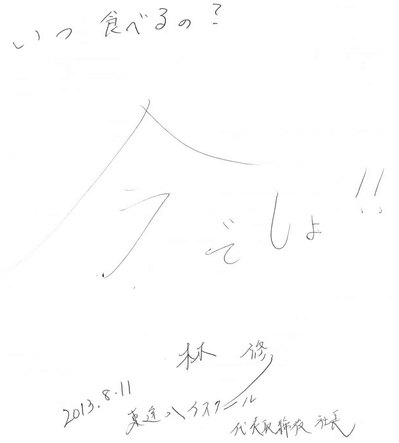 いつ 食べるの?
今でしょ!!
林 修
2013.8.11
東進ハイスクール
代表取締役 社長